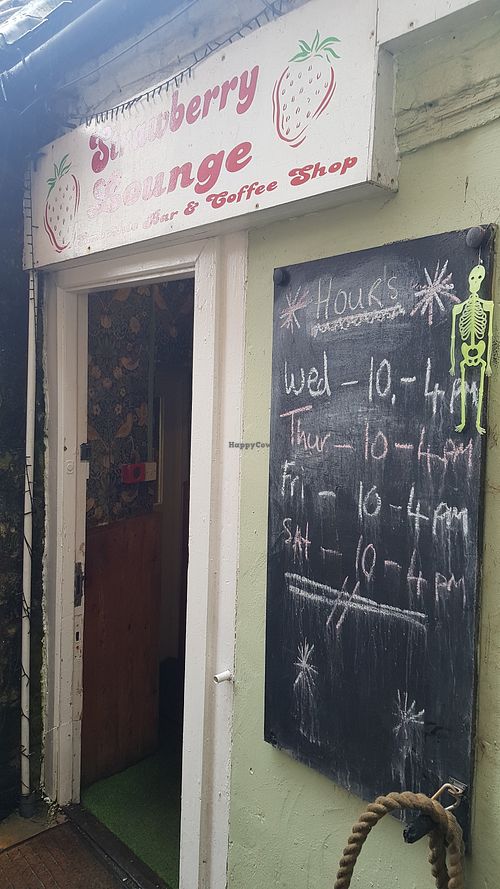 Strawberry
Lounge
Bar & Coffee Shop
HOUR'S
Wed - 10.-4pm
Thur - 10-4pm
Fri - 10-4pm
SAt - 10-4pm
HappyCow